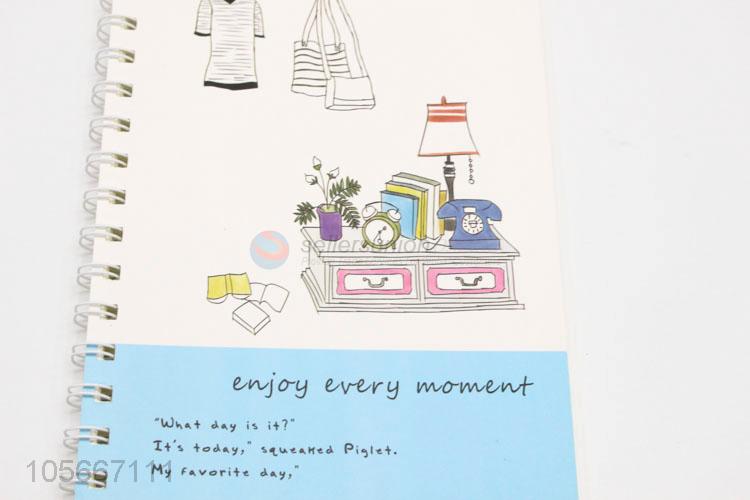 sellersunion
enjoy every moment
"What day is it?"
It's today," squeaked Piglet.
My favorite day,"
105667111